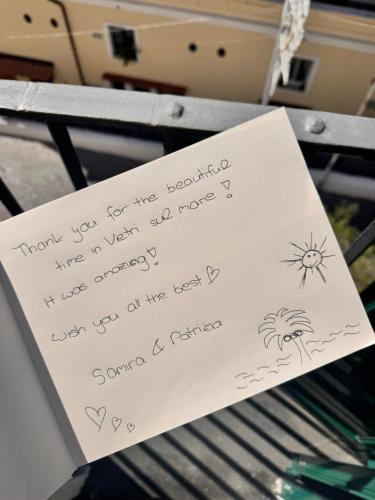 Thank you for the beautiful
time in Vietri sul mare!
It was amazing!
wish you all the best
Samira & Patrizia